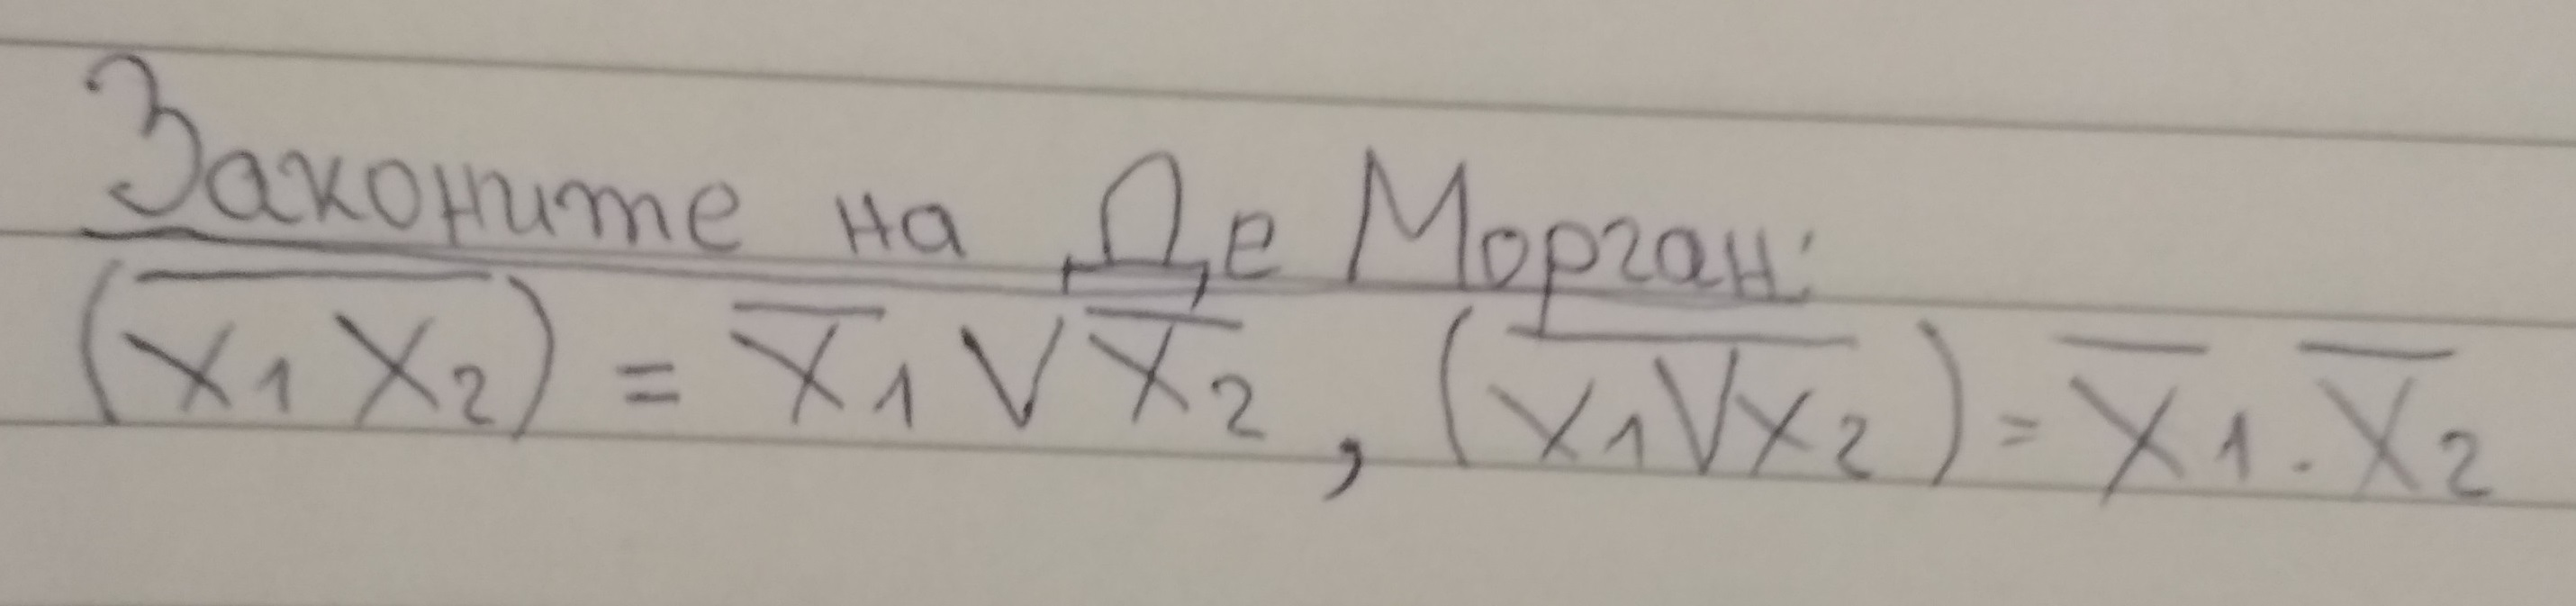 Законите на Де Морган:
(x̅₁x̅₂) = x̅₁ V x̅₂, (x̅₁V̅x̅₂) = x̅₁ . x̅₂